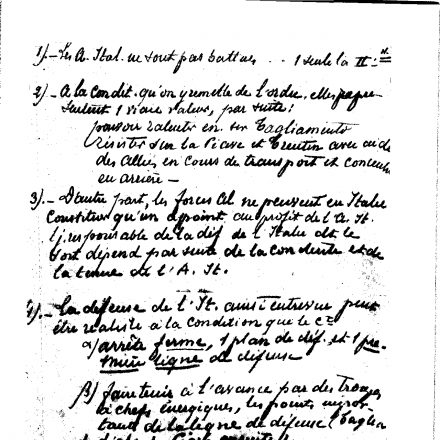 1).- Les A. Ital. ne sont pas battues ... 1 seule la IIe
2).- A la condit. qu'on y remette de l'ordre, elles
seulement 1 vraie valeur, par suite:
pouvoir ralentir en sur Tagliamento
résister sur la Piave et Trentin avec
des Alliés, en cours de transport et
en arrière -
3).- D'autre part, les forces Al. ne peuvent en Italie
constituer qu'un appoint au profit de l'A. It.
tj. responsable de la déf. de l'Italie dt le
sort dépend par suite de la conduite et de
la tenue de l'A. It.
4).- La défense de l'It. ainsi entrevue peut
être réalisée à la condition que le Ct
α) arrête ferme, 1 plan de déf. et 1 pre-
mière ligne de défense
β) fasse tenir à l'avance par des troupes
à chefs énergiques, les points impor-
tants de la ligne de défense (Taglia